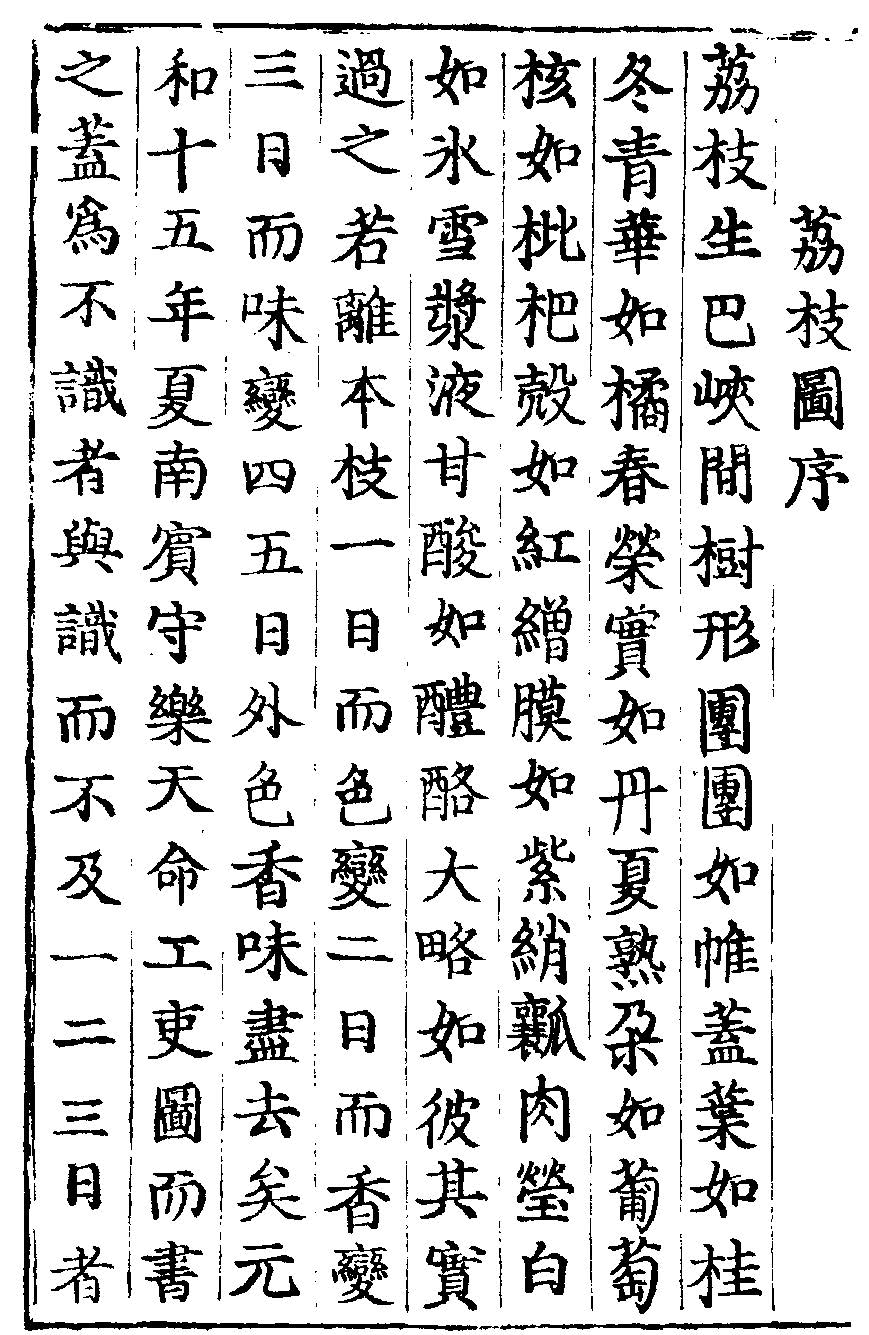 荔枝圖序
荔枝生巴峽間樹形團團如帷蓋葉如桂
冬青華如橘春榮實如丹夏熟朶如葡萄
核如枇杷殼如紅繒膜如紫綃瓤肉瑩白
如氷雪漿液甘酸如醴酪大略如彼其實
過之若離本枝一日而色變二日而香變
三日而味變四五日外色香味盡去矣元
和十五年夏南賔守樂天命工吏圖而書
之蓋爲不識者與識而不及一二三日者